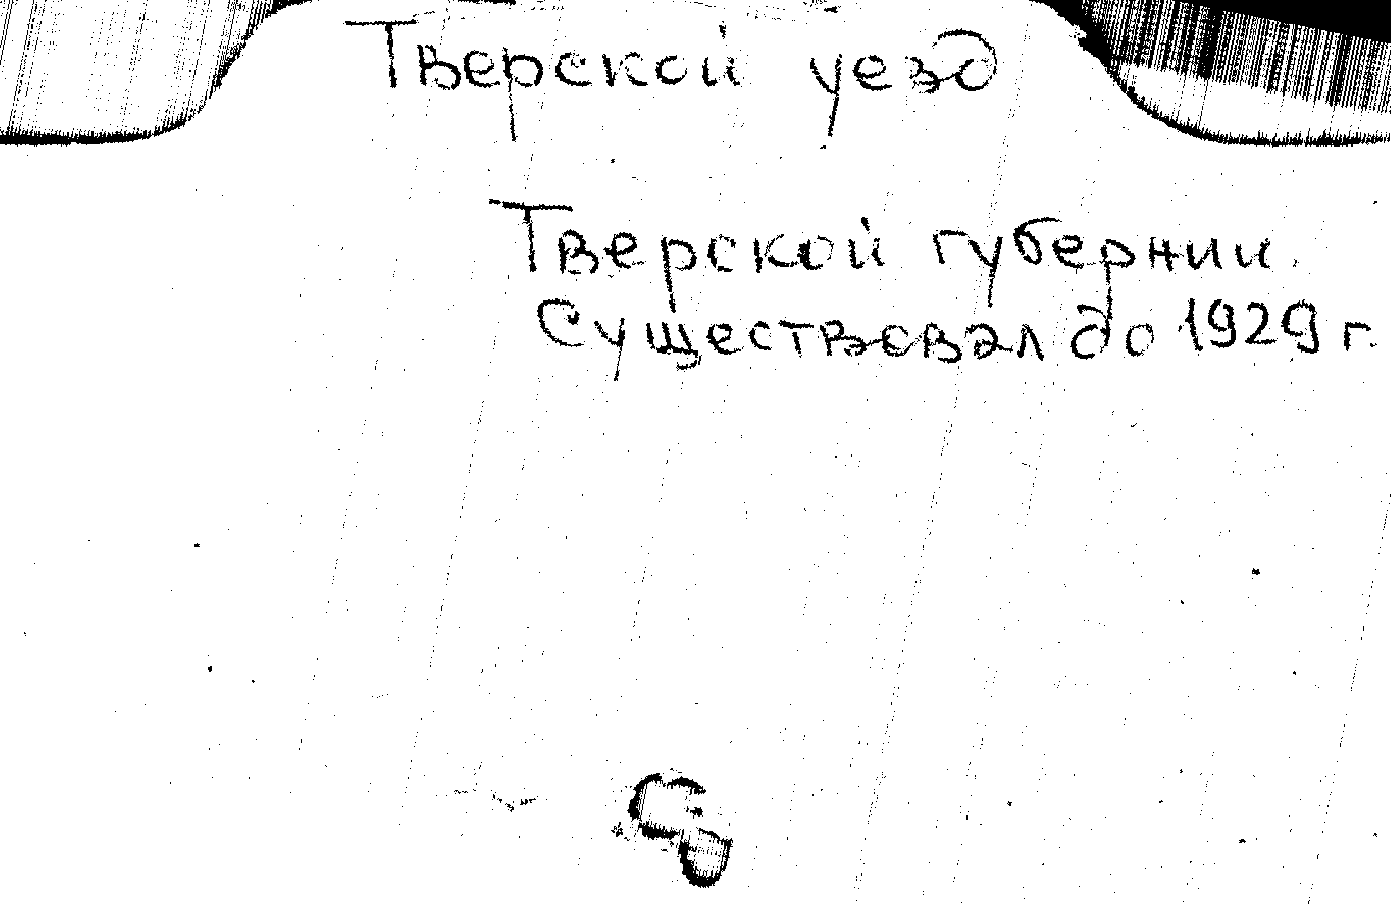 Тверской уезд
Тверской губернии.
Существовал до 1929 г.